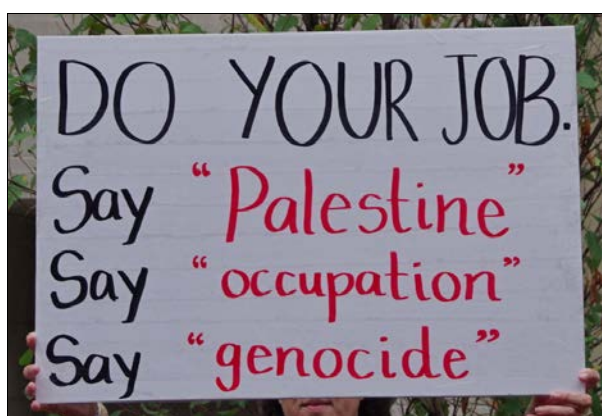 DO YOUR JOB.
Say “Palestine”
Say “occupation”
Say “genocide”